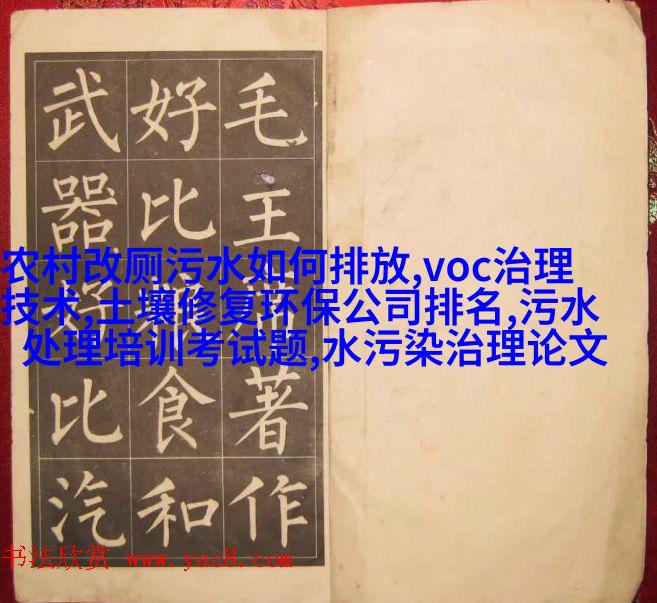 毛主席著作
好比粮食和
武器好比汽
农村改厕污水如何排放,voc治理
技术,土壤修复环保公司排名,污水
处理培训考试题,水污染治理论文
书法欣赏 www.yac8.com